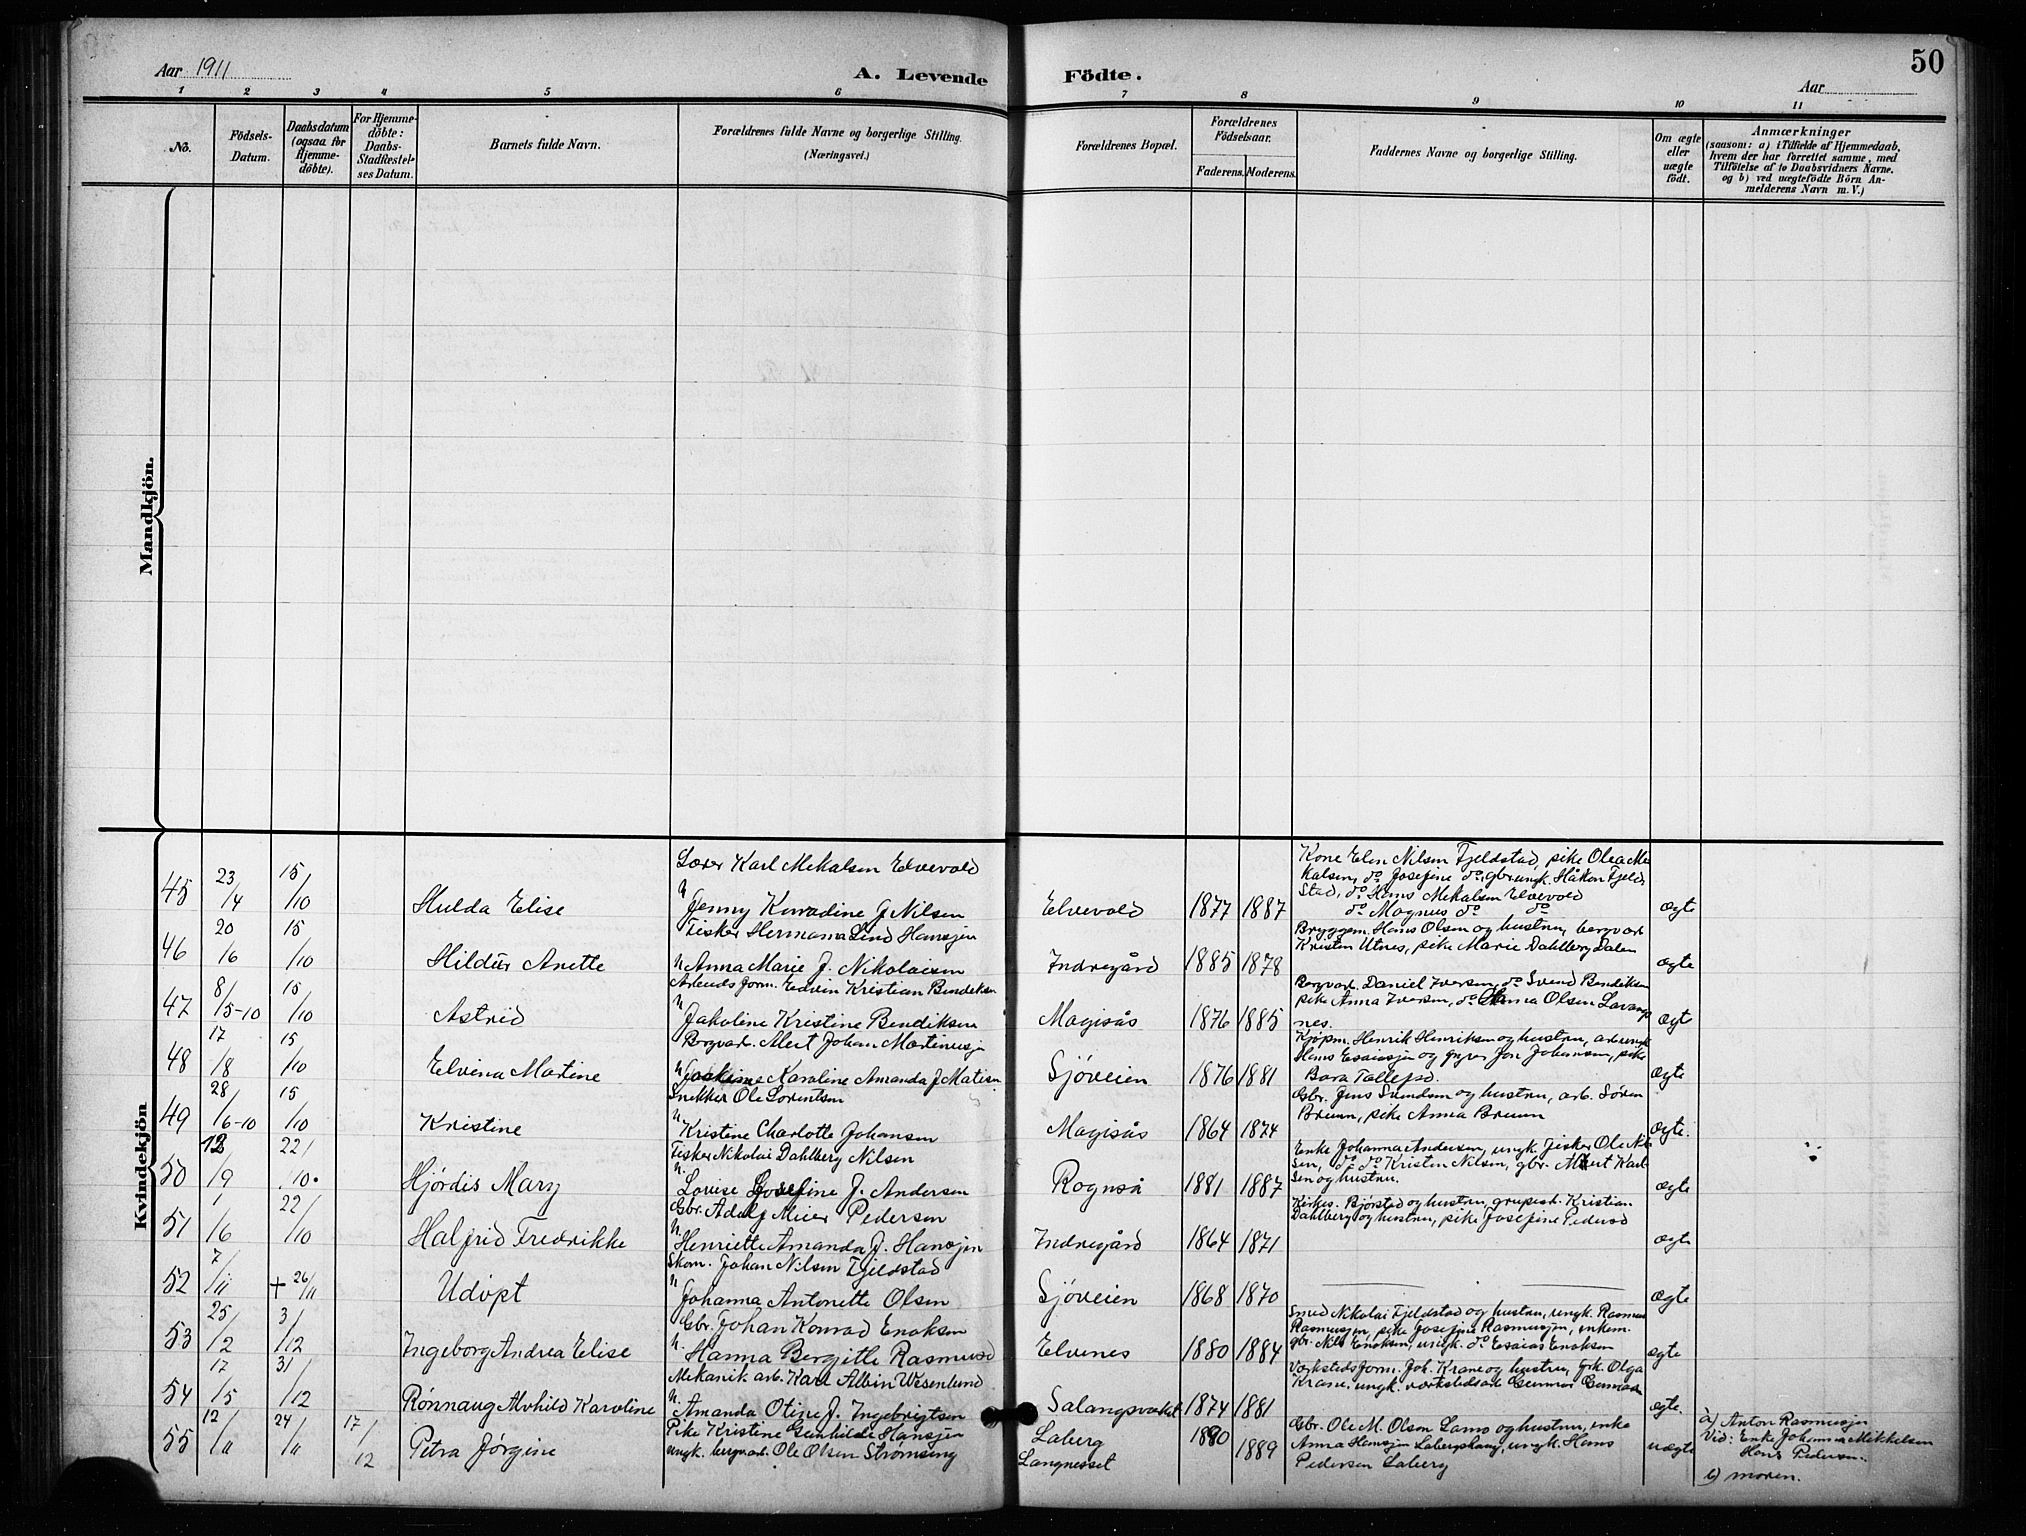 Aar 1911
A. Levende
Födte.
Aar
50
1 2 3 4 5 6 7 8 9 10 11
No.
Födsels-
Datum.
Daabsdatum
(ogsaa for
Hjemme-
döbte).
For Hjemme-
döbte:
Daabs-
Stadfæstel-
ses Datum.
Barnets fulde Navn.
Forældrenes fulde Navne og borgerlige Stilling.
(Næringsvei.)
Forældrenes Bopæl.
Forældrenes
Födselsaar.
Faderens. Moderens.
Faddernes Navne og borgerlige Stilling.
Om ægte
eller
uægte
födt.
Anmærkninger
(saasom: a) i Tilfælde af Hjemmedaab,
hvem der har forrettet samme, med
Tilföielse af to Daabsvidners Navne,
og b) ved uægtefödte Börn An-
melderens Navn m. V.)
Mandkjön.
Kvindekjön
45 23/4 15/10 Hulda Elise
Lærer Karl Mekalsen Elvevold
Jenny Konradine f. Nilsen
Elvevold 1877 1887
Kone Elen Nilsen Fjeldstad, pike Olea Me
kalsen, do Josefine do, gbr.ungk. Håkon Fjeld
stad, do Hans Mekalsen Elvevold
do Magnus do do
ægte
46 20/6 15/10 Hildur Anette
Fisker Hermann Lind Hanssen
Anna Marie f. Nikolaisen
Indregård 1885 1878
Bryggem. Hans Olsen og hustru, bergvark
Kristen Utnes, pike Marie Dahlberg Dalen
ægte
47 8/5-10 15/10 Astrid
Arbeidsform. Edvin Kristian Bendiksen
Jakoline Kristine Bendiksen
Magisås 1876 1885
Bergvark. Daniel Iversen, do Svend Bendiksen
pike Anna Iversen, do Anna Olsen Lavang
nes.
ægte
48 17/8 15/10 Elvina Martine
Bergvark. Alert Johan Martinussen
Joakime Karoline Amanda f. Matisen
Sjöveien 1876 1881
Kjøpm. Henrik Henriksen og hustru, arb.ungk
Hans Esaiassen og gyv. Jon Johansen, pike
Bora Tallefsd.
ægte
49 28/6-10 15/10 Kristine
Snekker Ole Lorentsen
Kristine Charlotte Johansen
Magisås 1864 1874
Gbr. Jens Svendsen og hustru, arb. Sören
Bruun, pike Anna Bruun
ægte.
50 12/9 22/10. Hjördis Mary
Fisker Nikolai Dahlberg Nilsen
Lovise Josefine f. Andersen
Rognså 1881 1887
Enke Johanna Andersen, ungk. fisker Ole Nil
sen, do do Kristen Nilsen, gbr. Albert Karl
sen og hustru.
ægte
51 1/6 22/10 Halfrid Fredrikke
Gbr. Adolf Meier Pedersen
Henriette Amanda f. Hanssen
Indregård 1864 1871
Kirkes. Bjørstad og hustru, grupearb. Kristian
Dahlberg og hustru, pike Josefine Pedersd
ægte
52 7/11 + 26/11 Udöpt
Skom. Johan Nilsen Fjeldstad
Johanna Antonette Olsen
Sjöveien 1868 1870
ægte
53 25/2 3/12 Ingeborg Andrea Elise
Gbr. Johan Konrad Enoksen
Hanna Bergitte Rasmusd
Elvenes 1880 1884
Smed Nikolai Fjeldstad og hustru, ungk. Rasmus
Rasmussen, pike Josefine Rasmussen, enkem.
gbr. Nils Enoksen, ungk. do Esaias Enoksen
ægte
54 17/5 31/12 Rønnaug Alvhild Karoline
Mekanik arb. Karl Albin Wesenlund
Amanda Otine f. Ingebrigtsen
Salangsverket 1874 1881
Værkstedsform. Joh. Krane og hustru, frk. Olga
Krane, ungk. værkstedsarb Gunnar Gunnarsen
ægte.
55 12/11 24/11 17/12 Petra Jörgine
Pike Kristine Gunhilde Hanssen
ungk. bergvark. Ole Olsen Strömseng
Laberg
Langnesset
1880 1889
Gbr. Ole M. Olsen Lamo og hustru, enke
Anna Hanssen Labergshaug, ungk. Hans
Pedersen Laberg
uægte
a) Anton Rasmussen
Vid: Enke Johanna Mikkelsen
Hans Pedersen.
b) moren.